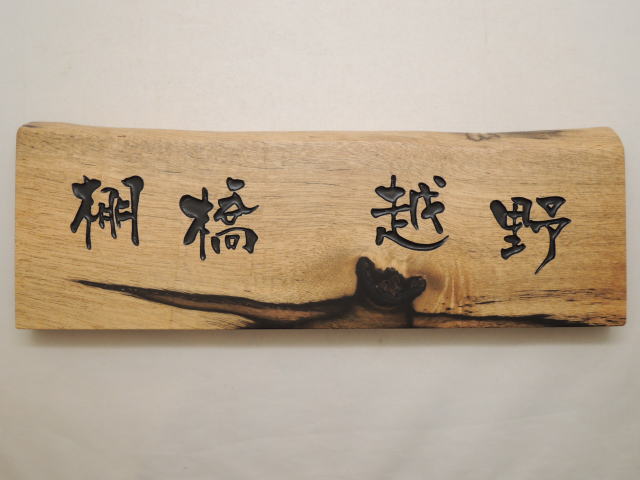 棚橋 越野